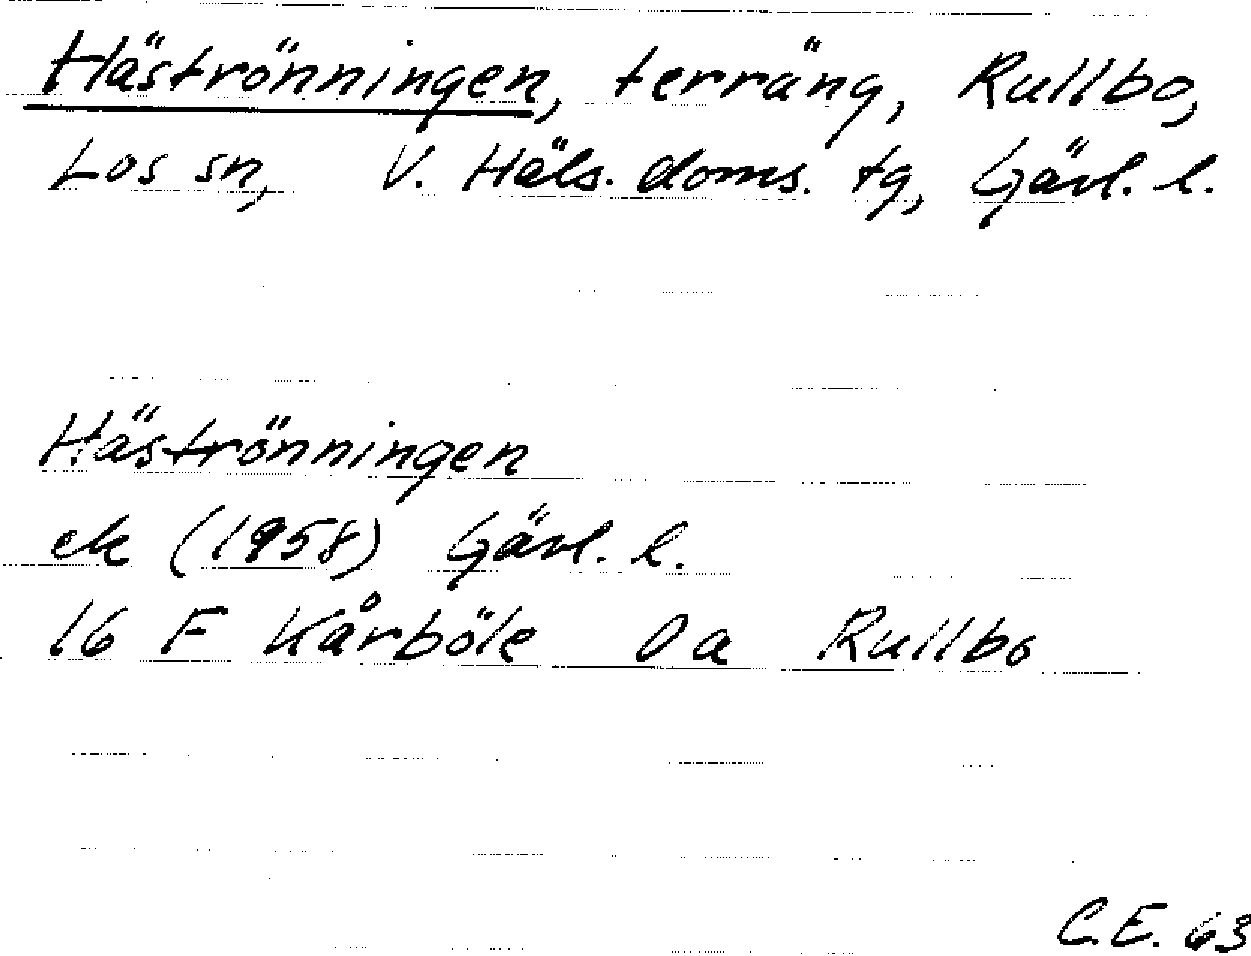 Häströnningen, terräng, Rullbo,
Los sn, V. Häls. doms. tg, Gävl. l.
Häströnningen
ek (1958) Gävl. l.
16 F Kårböle 0 a Rullbo
C.E. 63